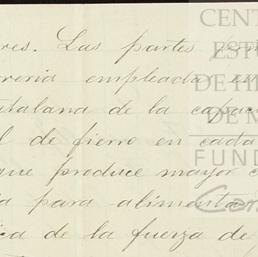 res. Las partes
reria empleada en
atalana de la capa
l de fierro en cada
que produce mayor c
ia para alimenta
ica de la fuerza de
CENT
EST
DE HI
DE M
FUND
Cars